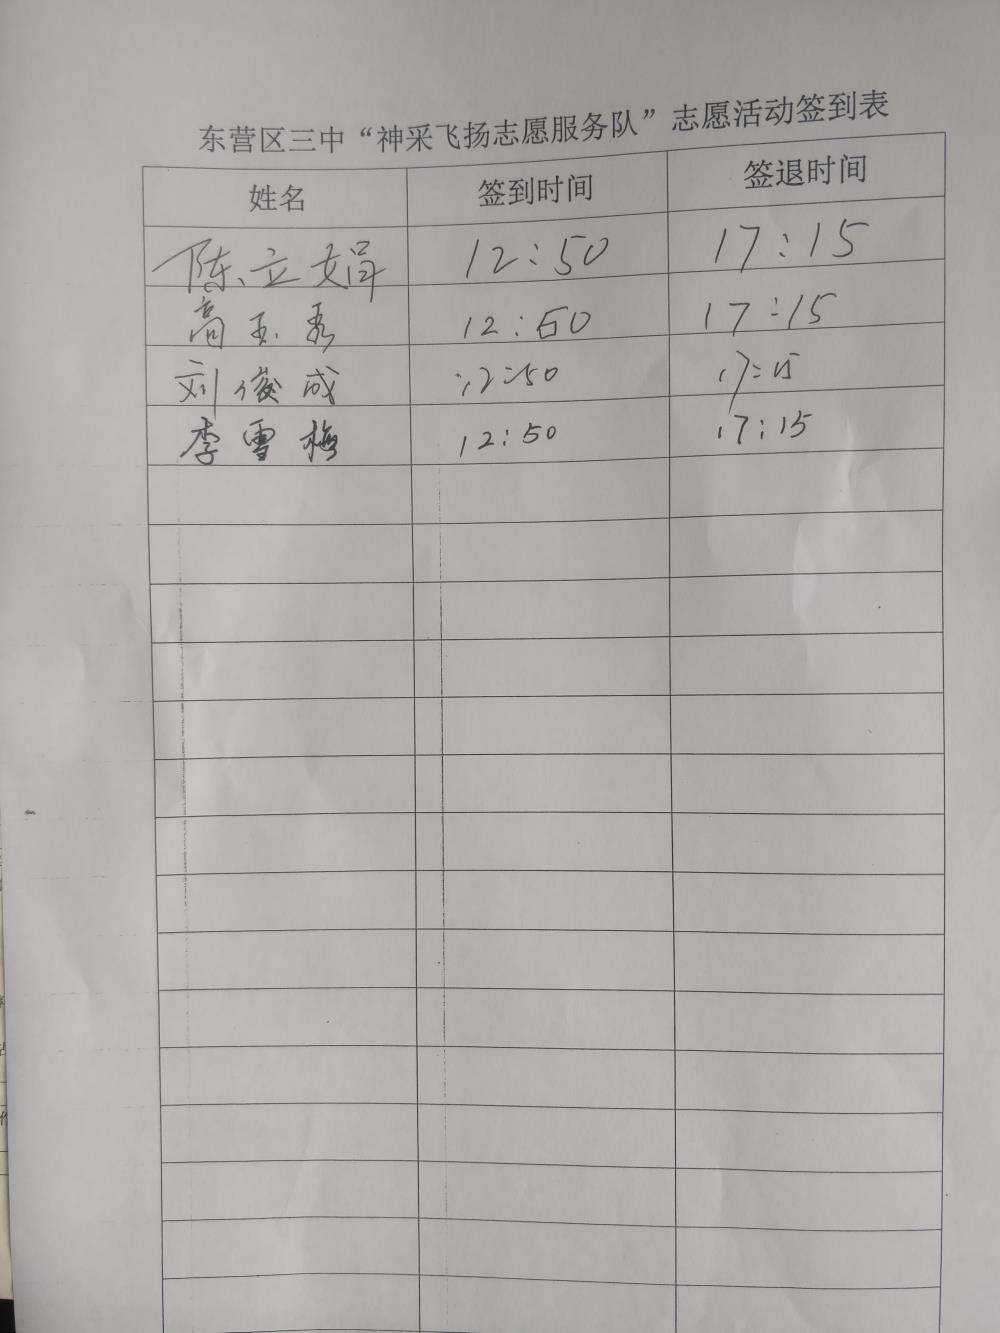 东营区三中“神采飞扬志愿服务队”志愿活动签到表
姓名 签到时间 签退时间
陈立娟 12:50 17:15
高玉秀 12:50 17:15
刘俊成 12:50 17:15
李雪梅 12:50 17:15